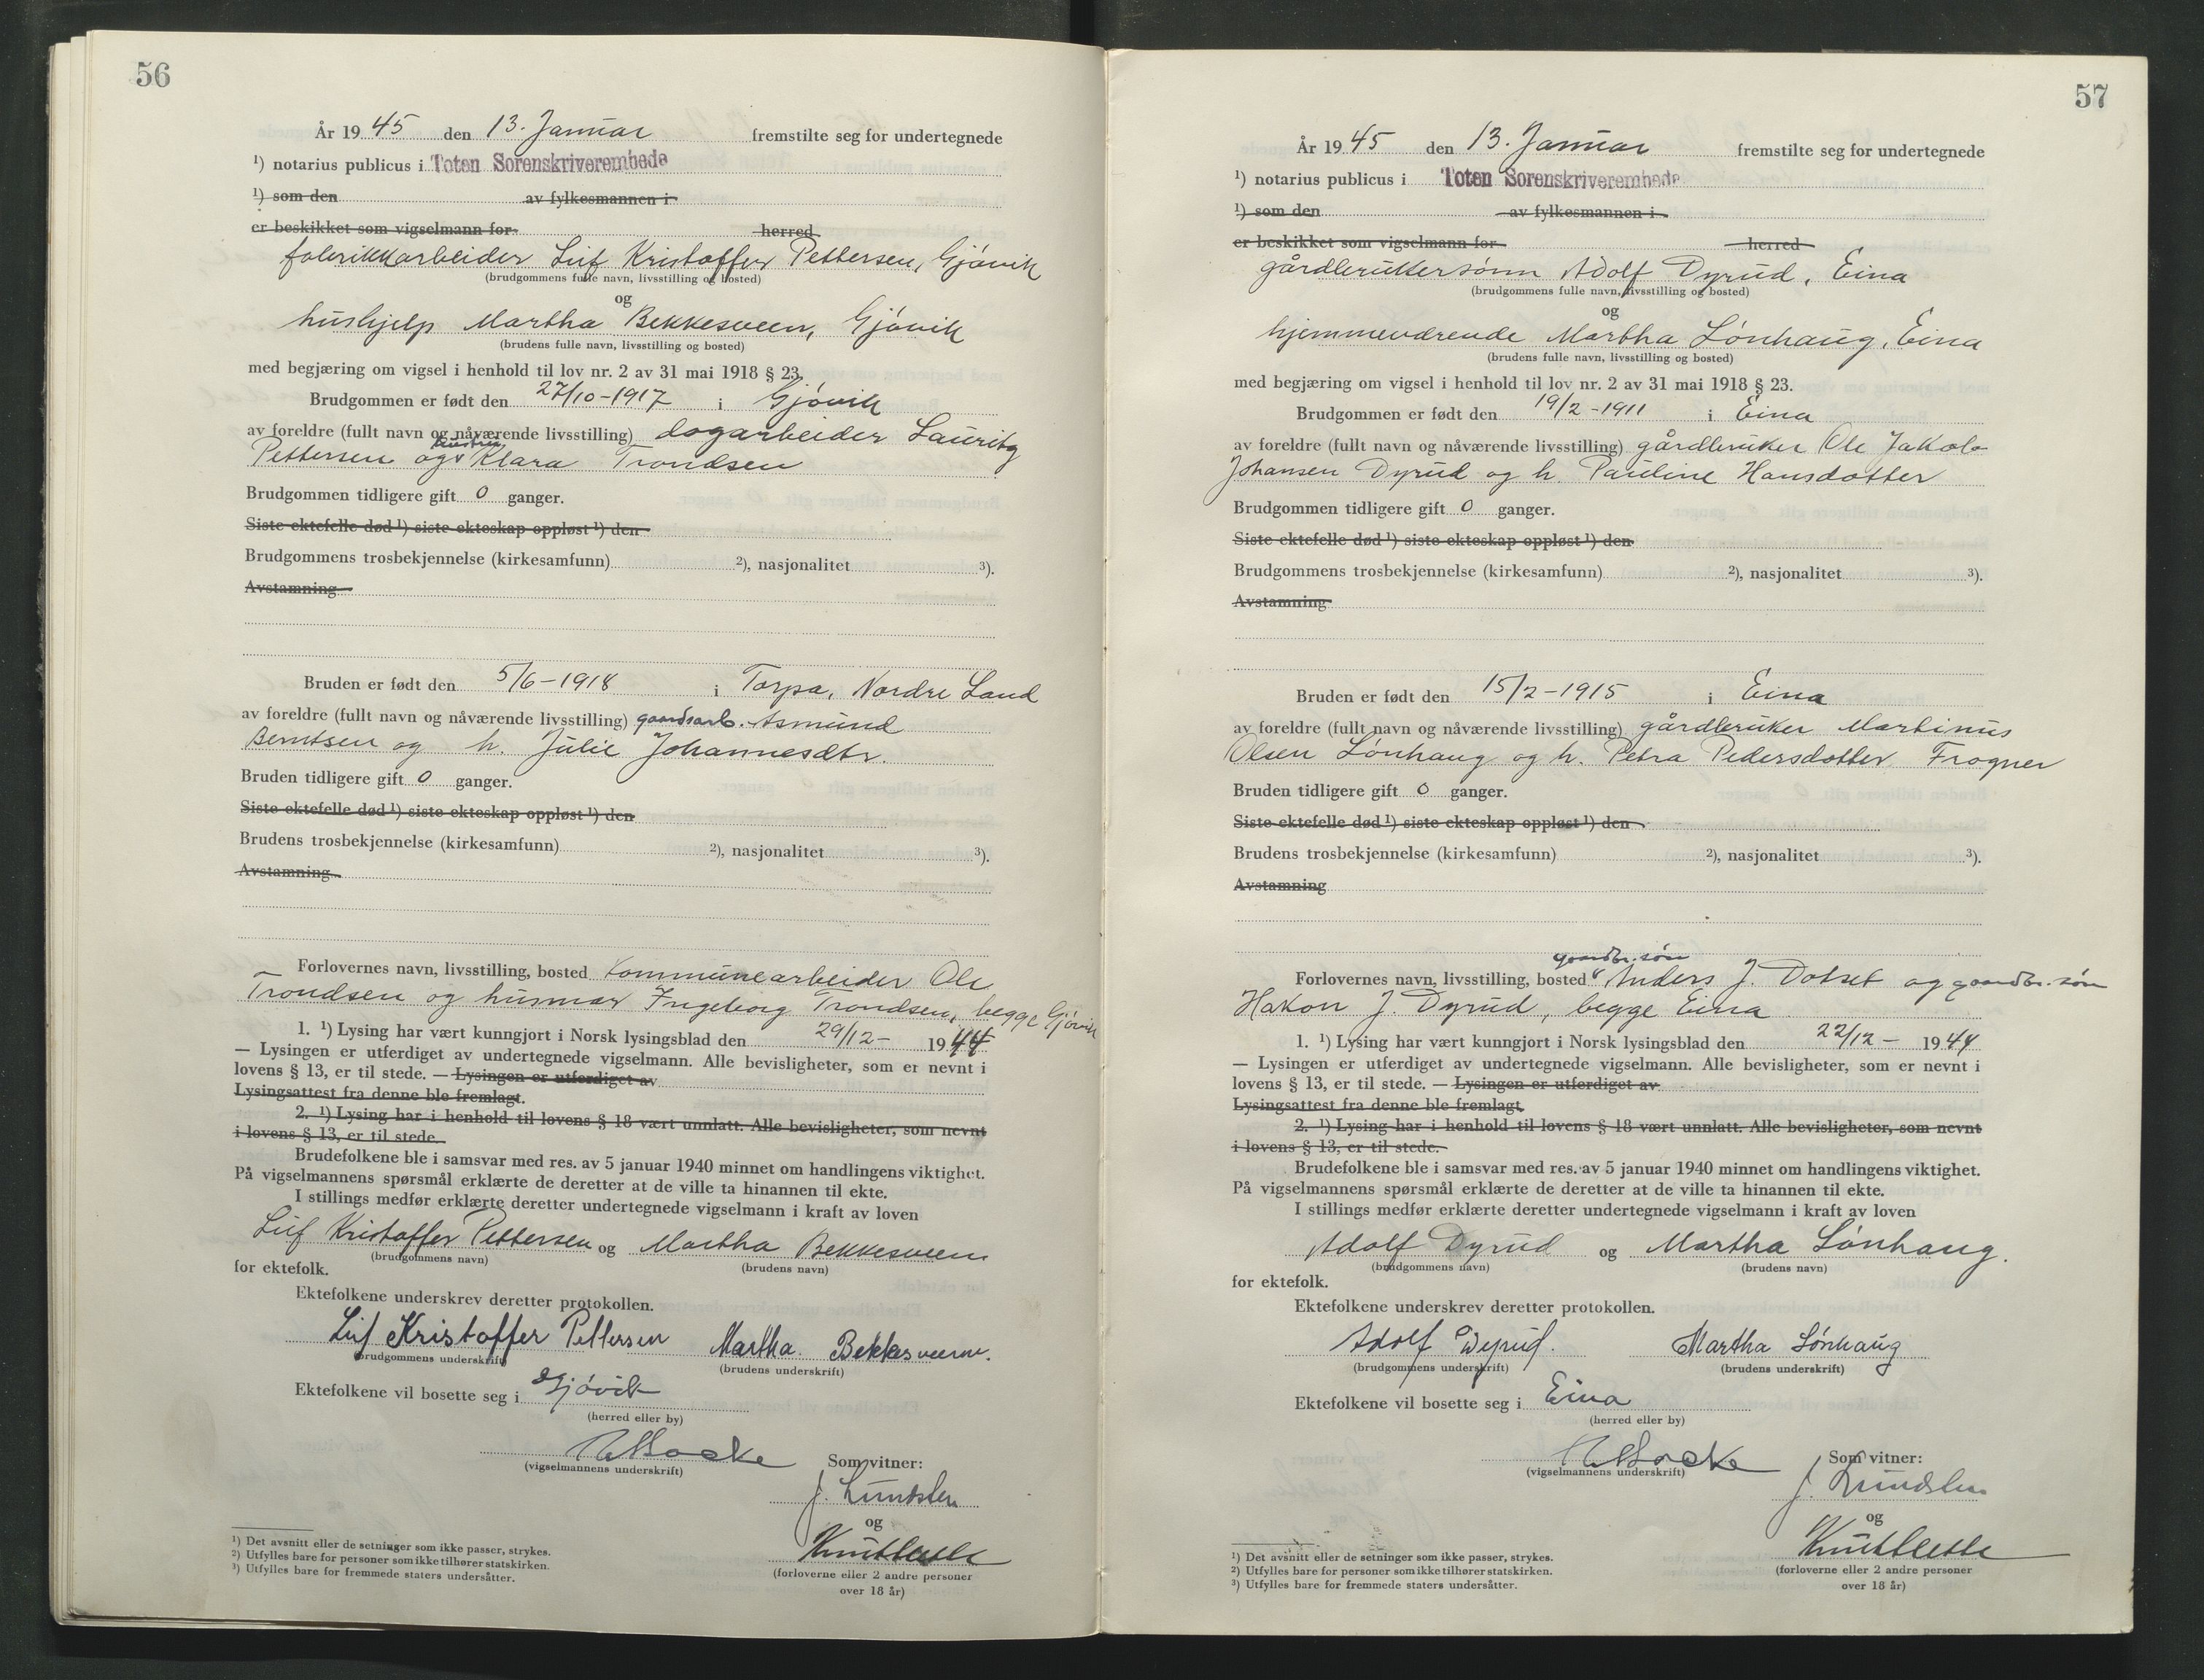 56
År 1945 den 13. Januar fremstilte seg for undertegnede
¹) notarius publicus i Toten Sorenskriverembede
¹) som den av fylkesmannen i
er beskikket som vigselmann for herred
fabrikkarbeider Leif Kristoffer Pettersen, Gjóvik
(brudgommens fulle navn, livsstilling og bosted)
og
hushjelp Martha Bekkesveen, Gjóvik
(brudens fulle navn, livsstilling og bosted)
med begjæring om vigsel i henhold til lov nr. 2 av 31 mai 1918 § 23.
Brudgommen er født den 27/10-1917 i Gjóvik
av foreldre (fullt navn og nåværende livsstilling) dagarbeider Lauritz
hustru
Pettersen og Klara Trondsen
Brudgommen tidligere gift 0 ganger.
Siste ektefelle død ¹) siste ekteskap oppløst ¹) den
Brudgommens trosbekjennelse (kirkesamfunn) ²), nasjonalitet ³).
Avstamning
Bruden er født den 5/6-1918 i Torpa, Nordre Land
av foreldre (fullt navn og nåværende livsstilling) gaardsarb. Asmund
Berntsen og h. Julie Johannesdtr.
Bruden tidligere gift 0 ganger.
Siste ektefelle død ¹) siste ekteskap oppløst ¹) den
Brudens trosbekjennelse (kirkesamfunn) ²), nasjonalitet ³).
Avstamning
Forlovernes navn, livsstilling, bosted Kommunearbeider Ole
Trondsen og husmor Ingeborg Trondsen, begge Gjóvik
1. ¹) Lysing har vært kunngjort i Norsk lysingsblad den 29/12- 1944
— Lysingen er utferdiget av undertegnede vigselmann. Alle bevisligheter, som er nevnt i
lovens § 13, er til stede. — Lysingen er utferdiget av
Lysingsattest fra denne ble fremlagt.
2. ¹) Lysing har i henhold til lovens § 18 vært unnlatt. Alle bevisligheter, som nevnt
i lovens § 13, er til stede.
Brudefolkene ble i samsvar med res. av 5 januar 1940 minnet om handlingens viktighet.
På vigselmannens spørsmål erklærte de deretter at de ville ta hinannen til ekte.
I stillings medfør erklærte deretter undertegnede vigselmann i kraft av loven
Leif Kristoffer Pettersen og Martha Bekkesveen
(brudgommens navn) (brudens navn)
for ektefolk.
Ektefolkene underskrev deretter protokollen.
Leif Kristoffer Pettersen Martha Bekkesveen.
(brudgommens underskrift) (brudens underskrift)
Ektefolkene vil bosette seg i Gjóvik
(herred eller by)
(vigselmannens underskrift) Som vitner:
J. Lundsten
og
(forloverne eller 2 andre personer
over 18 år)
¹) Det avsnitt eller de setninger som ikke passer, strykes.
²) Utfylles bare for personer som ikke tilhører statskirken.
³) Utfylles bare for fremmede staters undersåtter.
57
År 1945 den 13. Januar fremstilte seg for undertegnede
¹) notarius publicus i Toten Sorenskriverembede
¹) som den av fylkesmannen i
er beskikket som vigselmann for herred
gårdbrukersønn Adolf Dyrud, Eina
(brudgommens fulle navn, livsstilling og bosted)
og
hjemmeværende Martha Lónhaug, Eina
(brudens fulle navn, livsstilling og bosted)
med begjæring om vigsel i henhold til lov nr. 2 av 31 mai 1918 § 23.
Brudgommen er født den 19/2-1911 i Eina
av foreldre (fullt navn og nåværende livsstilling) gårdbruker Ole Jakob
Johansen Dyrud og h. Pauline Hansdotter
Brudgommen tidligere gift 0 ganger.
Siste ektefelle død ¹) siste ekteskap oppløst ¹) den
Brudgommens trosbekjennelse (kirkesamfunn) ²), nasjonalitet ³).
Avstamning
Bruden er født den 15/2-1915 i Eina
av foreldre (fullt navn og nåværende livsstilling) gårdbruker Martinus
Olsen Lónhaug og h. Petra Pedersdotter Frogner
Bruden tidligere gift 0 ganger.
Siste ektefelle død ¹) siste ekteskap oppløst ¹) den
Brudens trosbekjennelse (kirkesamfunn) ²), nasjonalitet ³).
Avstamning
gaardbr. són
Forlovernes navn, livsstilling, bosted Anders J. Dotset og gaardbr. són
Hakon J. Dyrud, begge Eina
1. ¹) Lysing har vært kunngjort i Norsk lysingsblad den 22/12- 1944
— Lysingen er utferdiget av undertegnede vigselmann. Alle bevisligheter, som er nevnt i
lovens § 13, er til stede. — Lysingen er utferdiget av
Lysingsattest fra denne ble fremlagt.
2. ¹) Lysing har i henhold til lovens § 18 vært unnlatt. Alle bevisligheter, som nevnt
i lovens § 13, er til stede.
Brudefolkene ble i samsvar med res. av 5 januar 1940 minnet om handlingens viktighet.
På vigselmannens spørsmål erklærte de deretter at de ville ta hinannen til ekte.
I stillings medfør erklærte deretter undertegnede vigselmann i kraft av loven
Adolf Dyrud og Martha Lónhaug.
(brudgommens navn) (brudens navn)
for ektefolk.
Ektefolkene underskrev deretter protokollen.
Adolf Dyrud. Martha Lónhaug
(brudgommens underskrift) (brudens underskrift)
Ektefolkene vil bosette seg i Eina
(herred eller by)
(vigselmannens underskrift) Som vitner:
J. Lundsten
og
(forloverne eller 2 andre personer
over 18 år)
¹) Det avsnitt eller de setninger som ikke passer, strykes.
²) Utfylles bare for personer som ikke tilhører statskirken.
³) Utfylles bare for fremmede staters undersåtter.